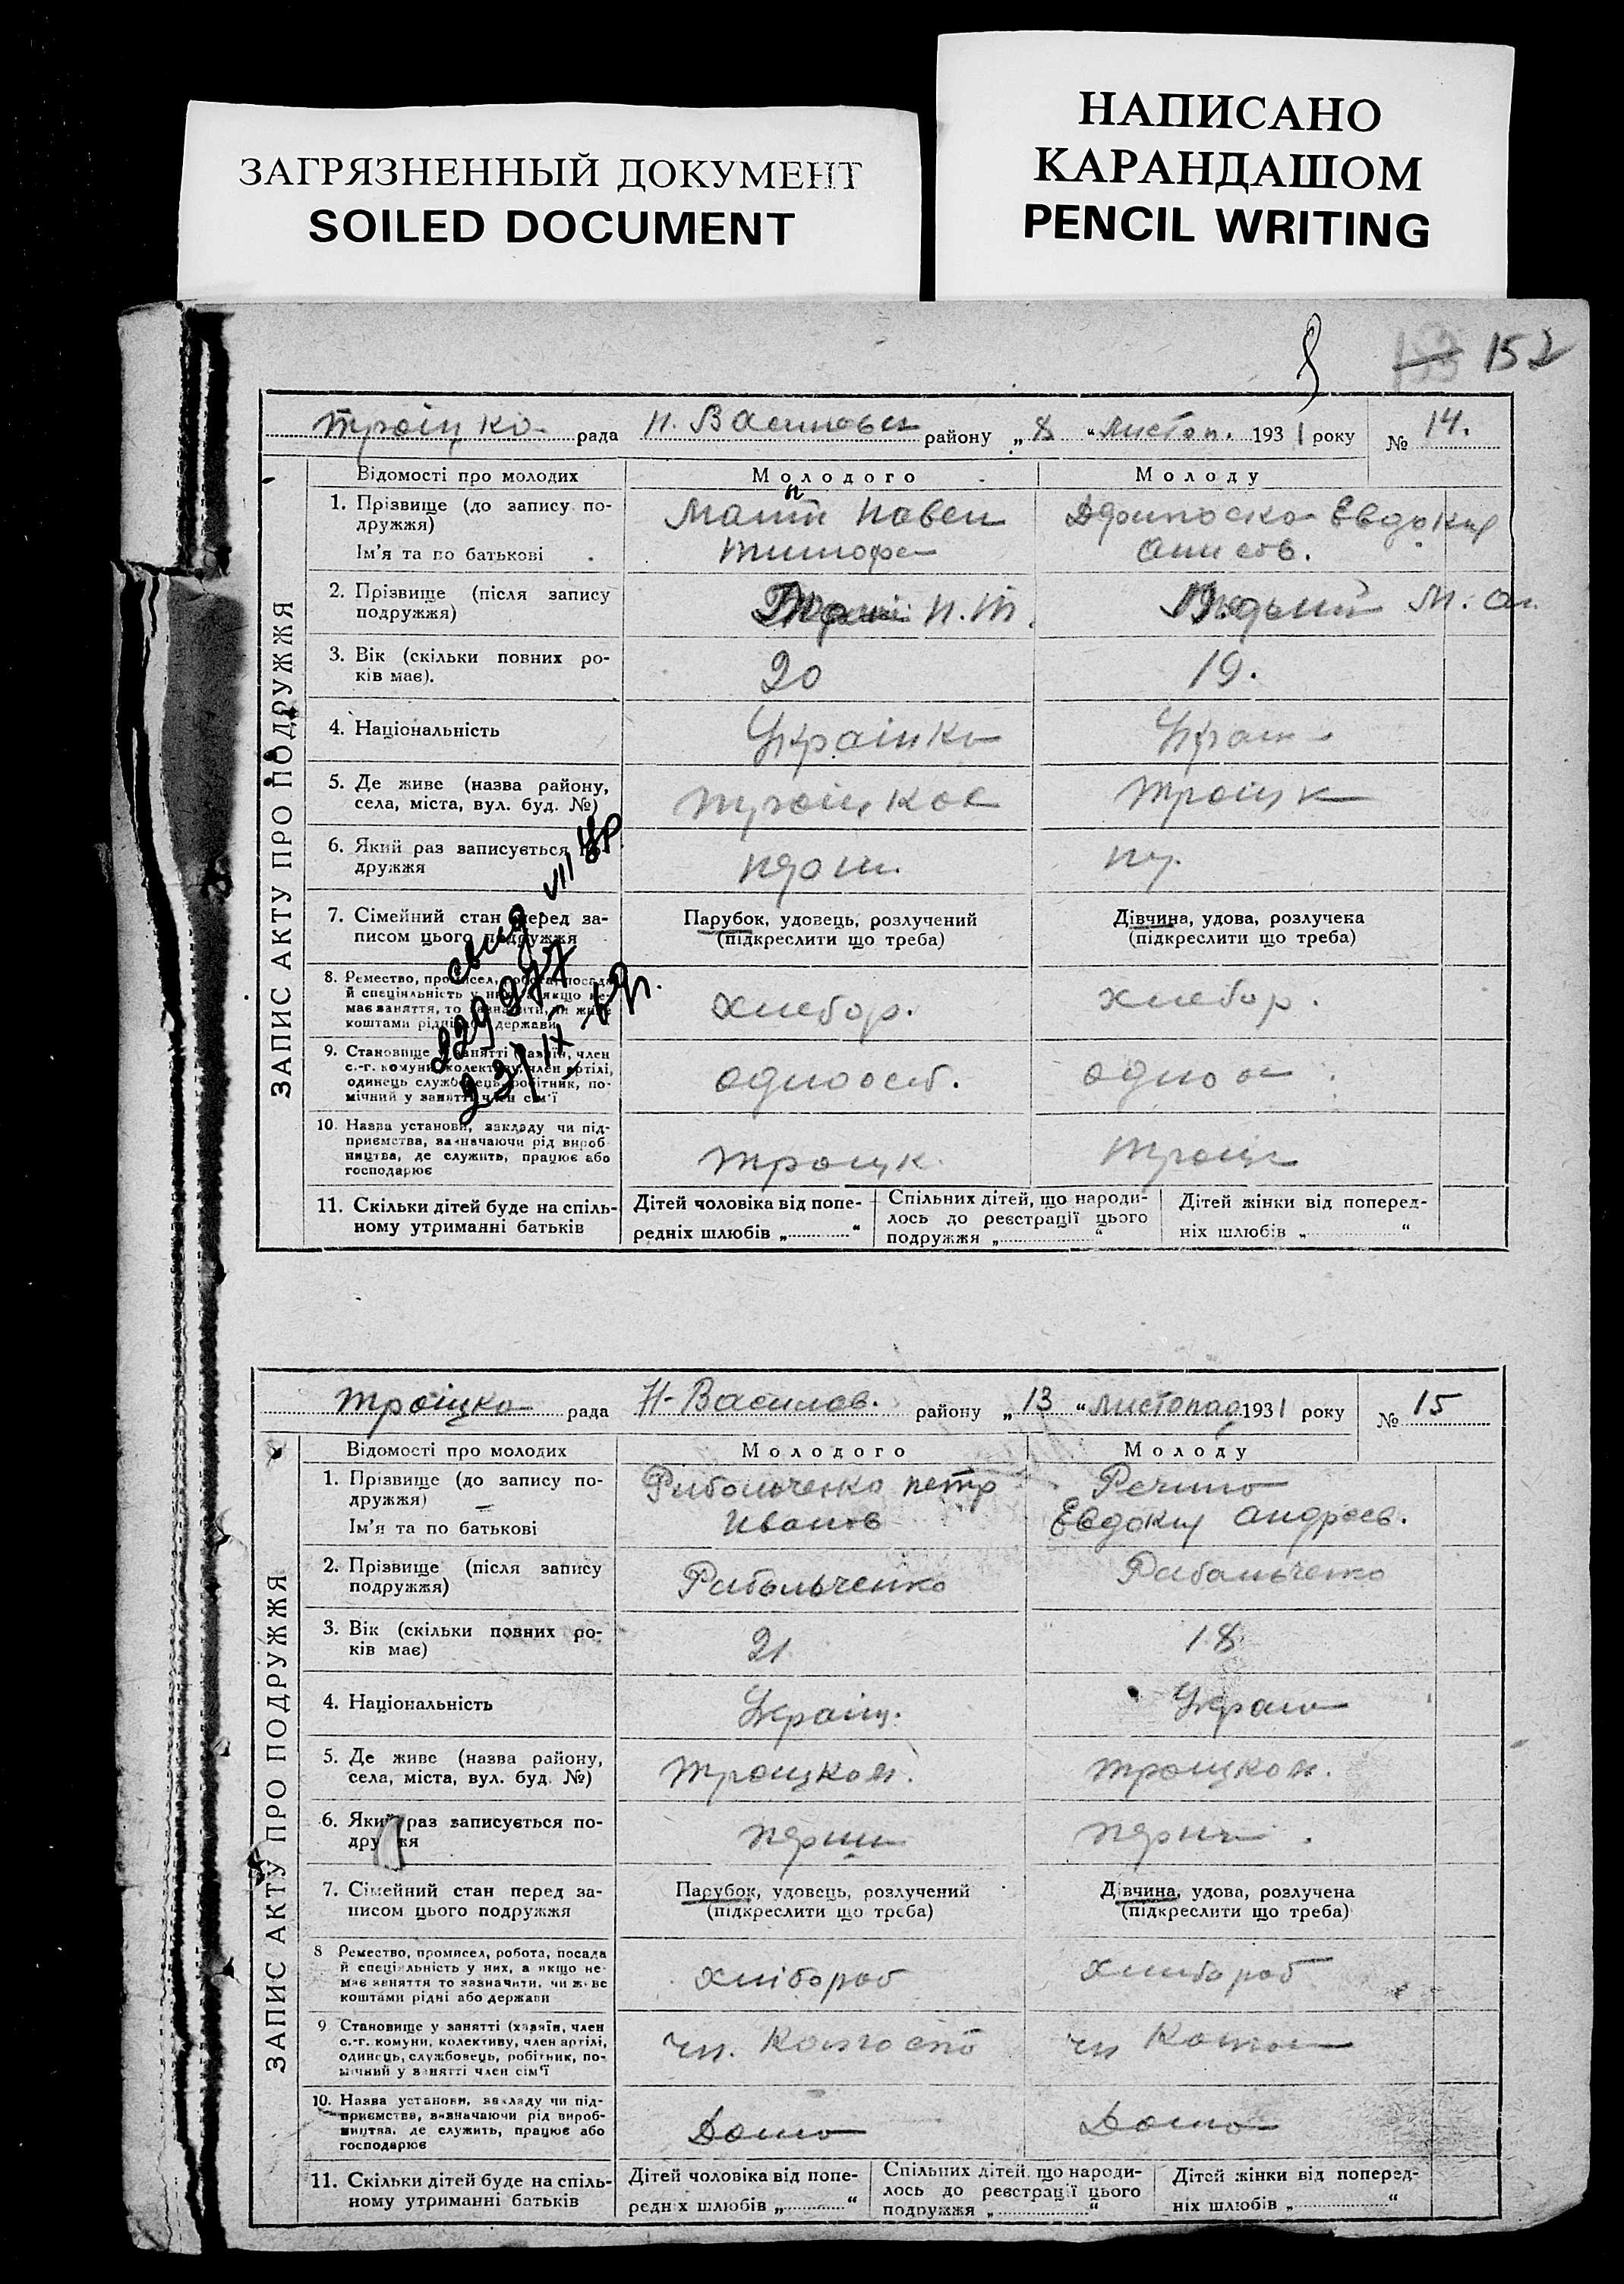 НАПИСАНО
КАРАНДАШОМ
PENCIL WRITING
ЗАГРЯЗНЕННЫЙ ДОКУМЕНТ
SOILED DOCUMENT
152
Троіцко рада Н. Васильевк району „ 8 “ листоп. 1931 року № 14.
ЗАПИС АКТУ ПРО ПОДРУЖЖЯ
Відомості про молодих Молодого Молоду
1. Прізвище (до запису по-
дружжя)
Ім'я та по батькові
Павел
Тимофе
Евдокия
2. Прізвище (після запису
подружжя)
П. Т.
3. Вік (скільки повних ро-
ків має).
20 19.
4. Національність
Українко Украин
5. Де живе (назва району,
села, міста, вул. буд. №)
Троіцкое Троіцк
6. Який раз записується по-
дружжя
7. Сімейний стан перед за-
писом цього подружжя
Парубок, удовець, розлучений
(підкреслити що треба)
Дівчина, удова, розлучена
(підкреслити що треба)
8. Ремество, промисел, робота, посада
й спеціяльність у них, а якщо не-
має заняття, то зазначити, чи живе
коштами рідні або держави
хлебор. хлебор.
9. Становище у занятті (хазяїн, член
с.-г. комуни, колективу, член артілі,
одинець службовець, робітник, по-
мічний у занятті член сім'ї
одноосіб. одноо
10. Назва установи, закладу чи під-
приємства, зазначаючи рід вироб-
ництва, де служить, працює або
господарює
Троцк. Троіц
11. Скільки дітей буде на спіль-
ному утриманні батьків
Дітей чоловіка від попе-
редніх шлюбів „ “
Спільних дітей, що народи-
лось до реєстрації цього
подружжя „ “
Дітей жінки від поперед-
ніх шлюбів „ “
свид
229977
23/IX
Троіцко рада Н-Васильев. району „ 13 “ листопад 1931 року № 15
ЗАПИС АКТУ ПРО ПОДРУЖЖЯ
Відомості про молодих Молодого Молоду
1. Прізвище (до запису по-
дружжя)
Ім'я та по батькові
Рибольченко Петр
Иванов
Евдокия Андреев.
2. Прізвище (після запису
подружжя)
Рибольченко Рибольченко
3. Вік (скільки повних ро-
ків має)
21 18
4. Національність
Украин. Украин
5. Де живе (назва району,
села, міста, вул. буд. №)
Троицком. Троицком.
6. Який раз записується по-
дружжя
перш перш.
7. Сімейний стан перед за-
писом цього подружжя
Парубок, удовець, розлучений
(підкреслити що треба)
Дівчина, удова, розлучена
(підкреслити що треба)
8 Ремество, промисел, робота, посада
й спеціяльність у них, а якщо не-
має заняття то зазначити, чи живе
коштами рідні або держави
хлібороб хлибороб
9 Становище у занятті (хазяїн, член
с.-г. комуни, колективу, член артілі,
одинець, службовець, робітник, по-
мічний у занятті член сім'ї
чл. Колгоспо чл Колгос
10. Назва установи, закладу чи під-
приємства, зазначаючи рід вироб-
ництва, де служить, працює або
господарює
Дома Дома
11. Скільки дітей буде на спіль-
ному утриманні батьків
Дітей чоловіка від попе-
редніх шлюбів „ “
Спільних дітей, що народи-
лось до реєстрації цього
подружжя „ “
Дітей жінки від поперед-
ніх шлюбів „ “